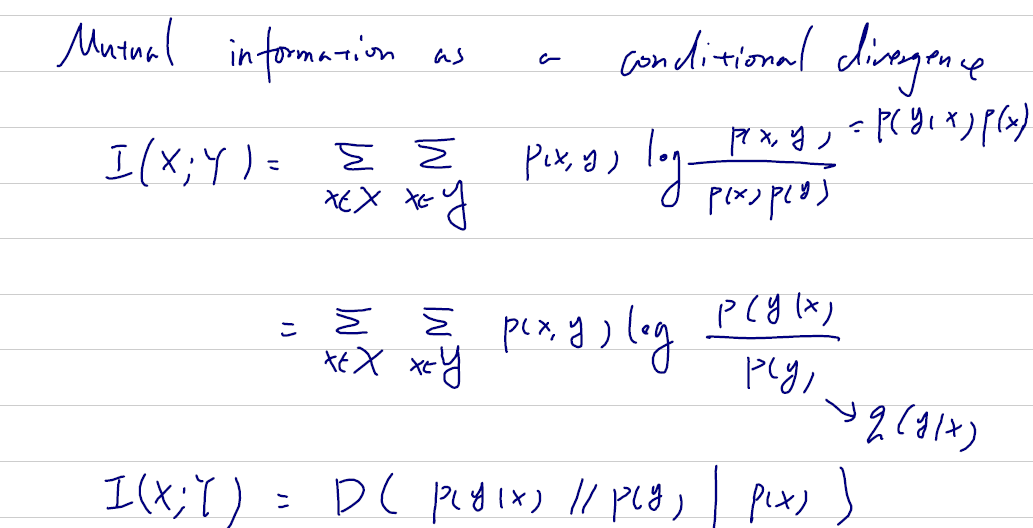 Mutual information as a conditional divergence
I(X;Y) = Σ_{x∈X} Σ_{x∈Y} p(x,y) log p(x,y) / p(x)p(y) = p(y|x)p(x)
= Σ_{x∈X} Σ_{x∈Y} p(x,y) log p(y|x) / p(y)
↘ q(y|x)
I(X;Y) = D( p(y|x) // p(y) | p(x) )